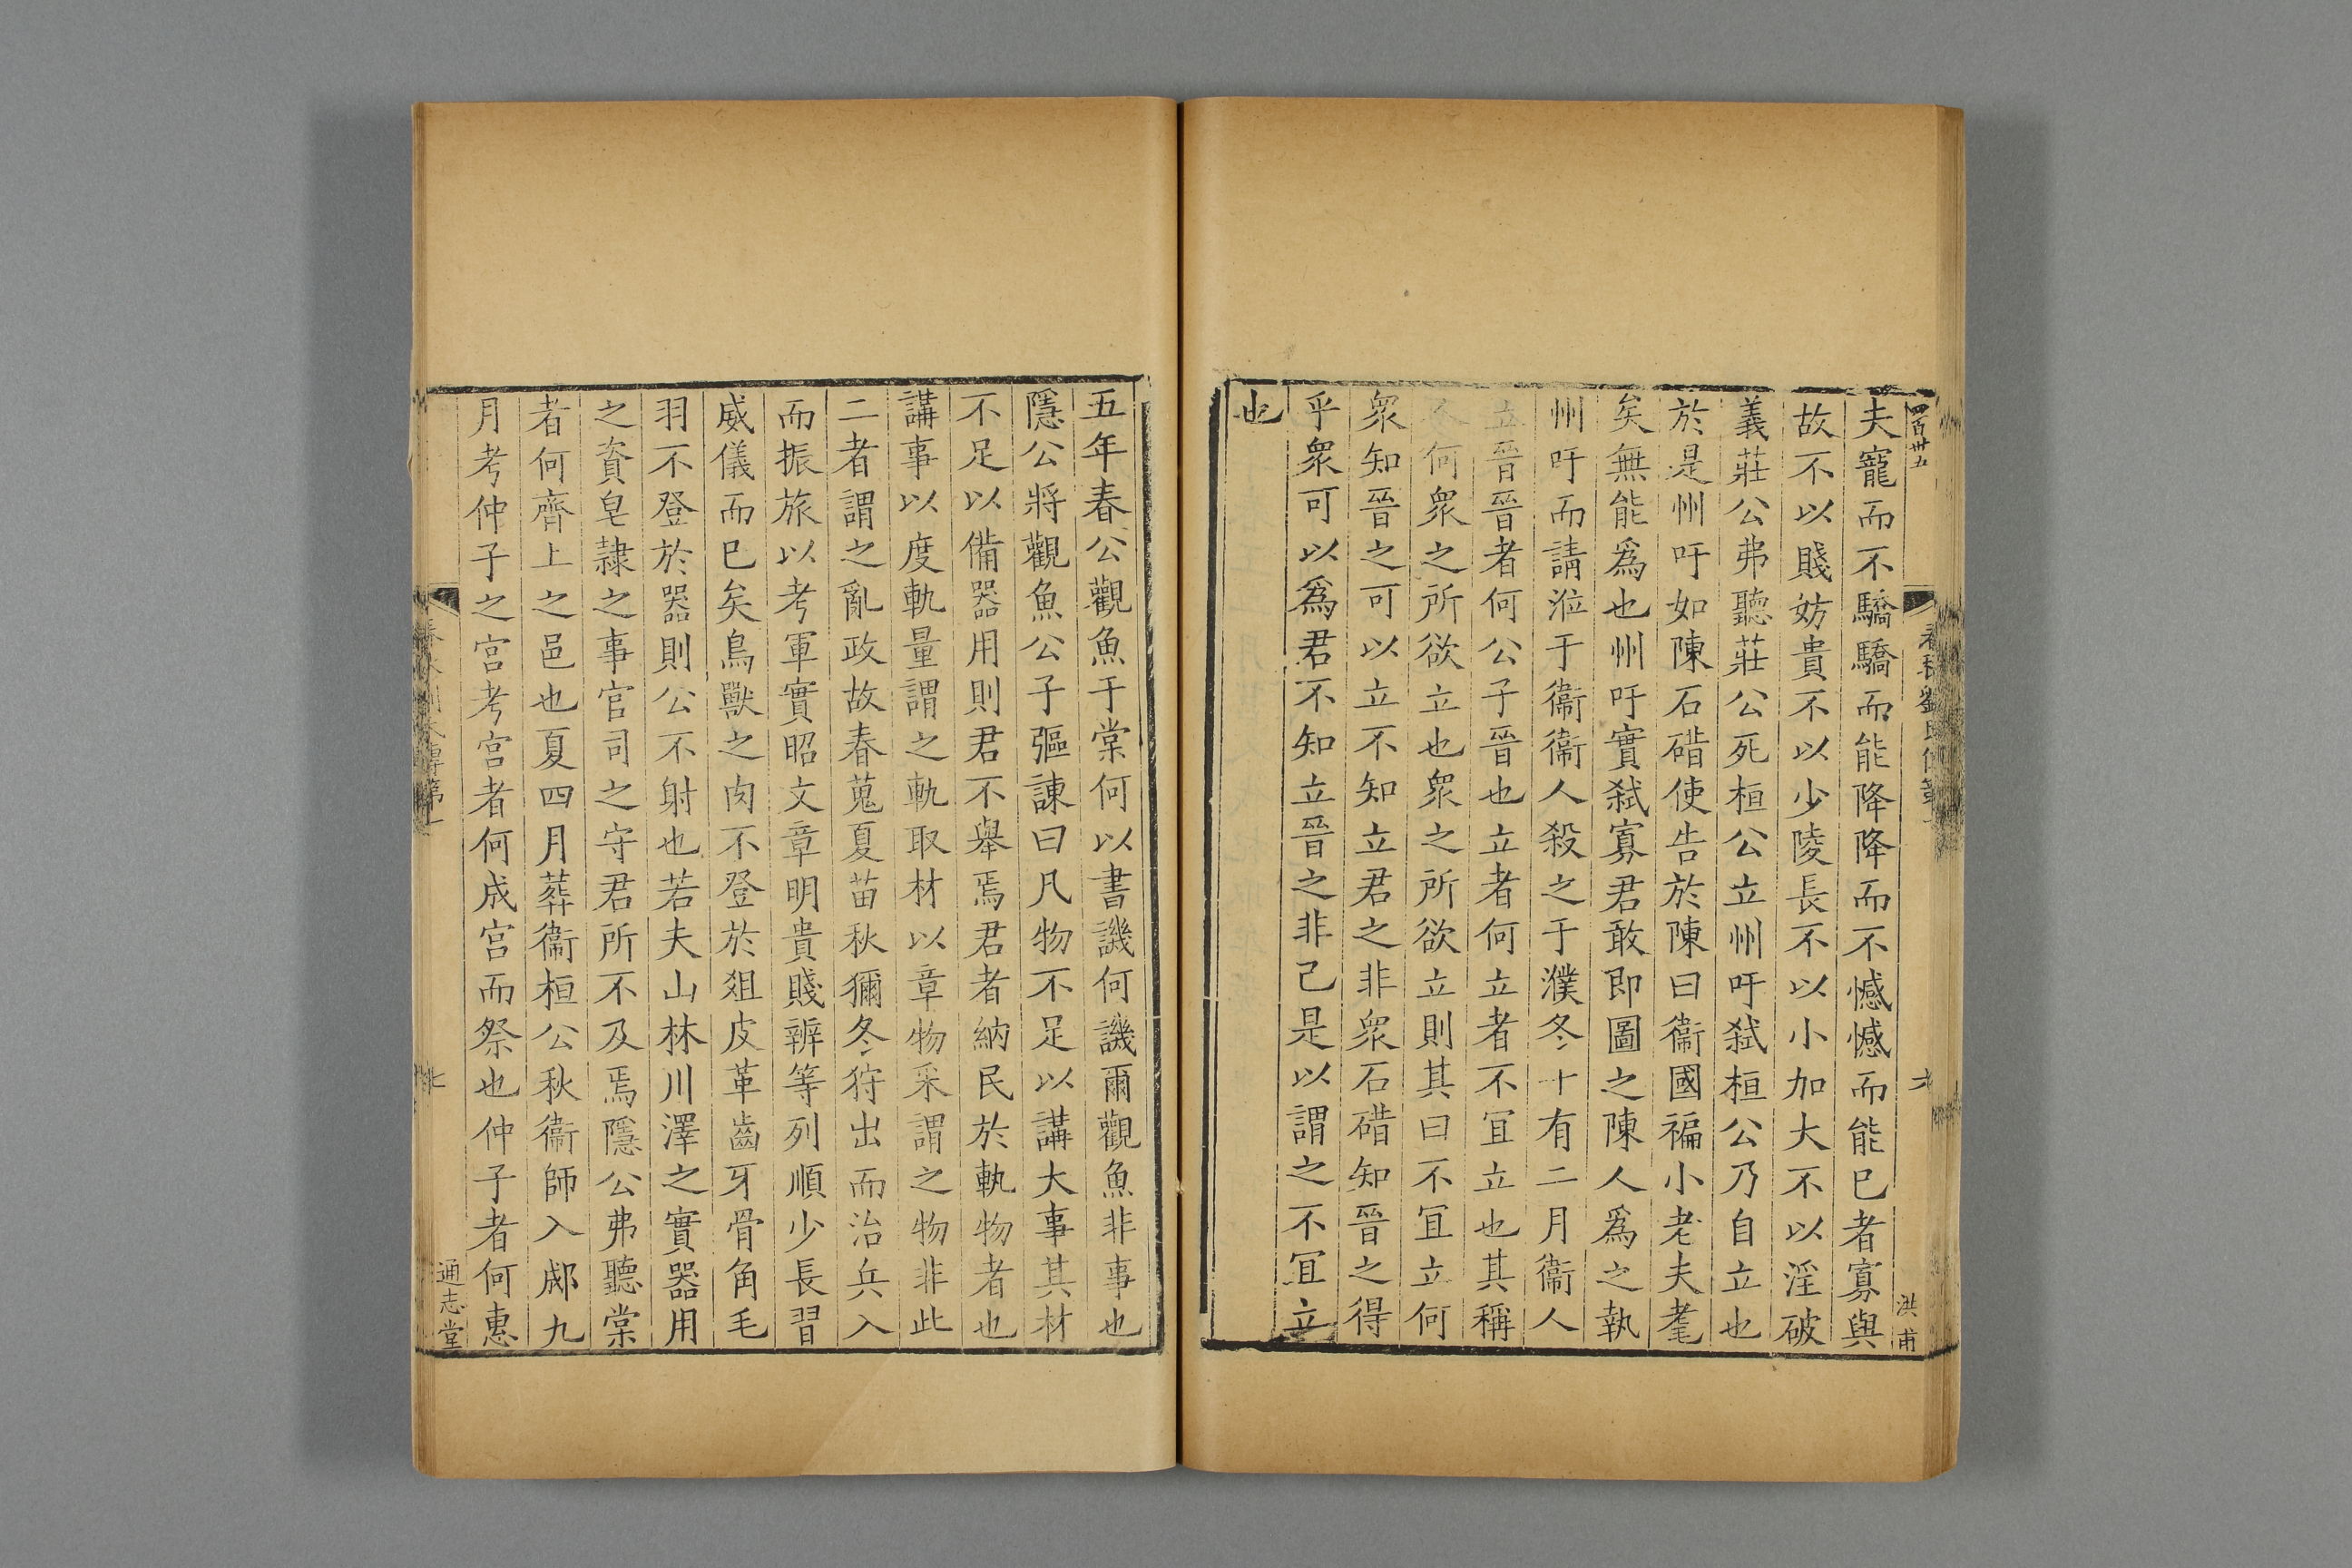 四百廿五
洪甫
夫寵而不驕驕而能降降而不憾憾而能已者寡與
故不以賤妨貴不以少陵長不以小加大不以淫破
義莊公弗聽莊公死桓公立州吁弑桓公乃自立也
於是州吁如陳石碏使告於陳曰衞國褊小老夫耄
矣無能爲也州吁實弑寡君敢即圖之陳人爲之執
州吁而請涖于衞衞人殺之于濮冬十有二月衞人
立晉晉者何公子晉也立者何立者不冝立也其稱
人何衆之所欲立也衆之所欲立則其曰不冝立何
衆知晉之可以立不知立君之非衆石碏知晉之得
乎衆可以爲君不知立晉之非己是以謂之不冝立
也
五年春公觀魚于棠何以書譏何譏爾觀魚非事也
隱公將觀魚公子彄諫曰凡物不足以講大事其材
不足以備器用則君不舉焉君者納民於軌物者也
講事以度軌量謂之軌取材以章物采謂之物非此
二者謂之亂政故春蒐夏苗秋獮冬狩出而治兵入
而振旅以考軍實昭文章明貴賤辨等列順少長習
威儀而巳矣鳥獸之肉不登於俎皮革齒牙骨角毛
羽不登於器則公不射也若夫山林川澤之實器用
之資皂隷之事官司之守君所不及焉隱公弗聽棠
者何齊上之邑也夏四月葬衞桓公秋衞師入郕九
月考仲子之宮考宮者何成宮而祭也仲子者何惠
通志堂